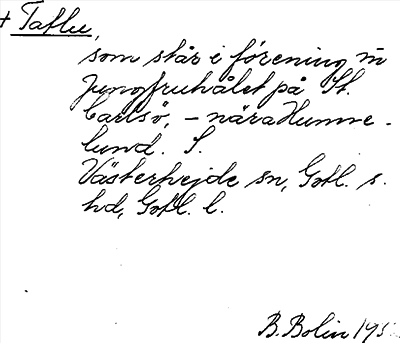 + Taflu,
som står i förening m̄
Jungfruhålet på St.
Carlsö, - nära Humne-
lund. S.
Västerhejde sn, Gotl. s.
hd, Gotl. l.
B. Bolin 195